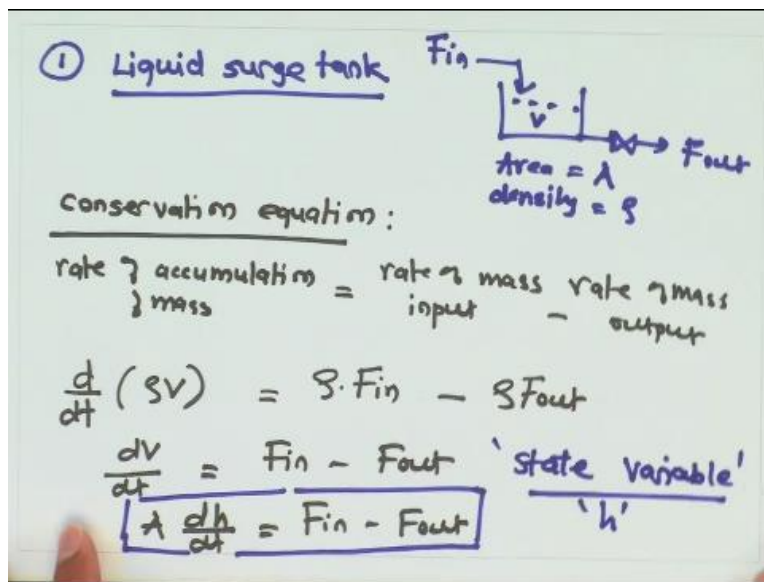 ① Liquid surge tank
Fin
V
Fout
Area = A
density = ρ
Conservation equation:
rate of accumulation of mass = rate of mass input - rate of mass output
d/dt (ρV) = ρ.Fin - ρFout
dV/dt = Fin - Fout
'state variable'
'h'
A dh/dt = Fin - Fout